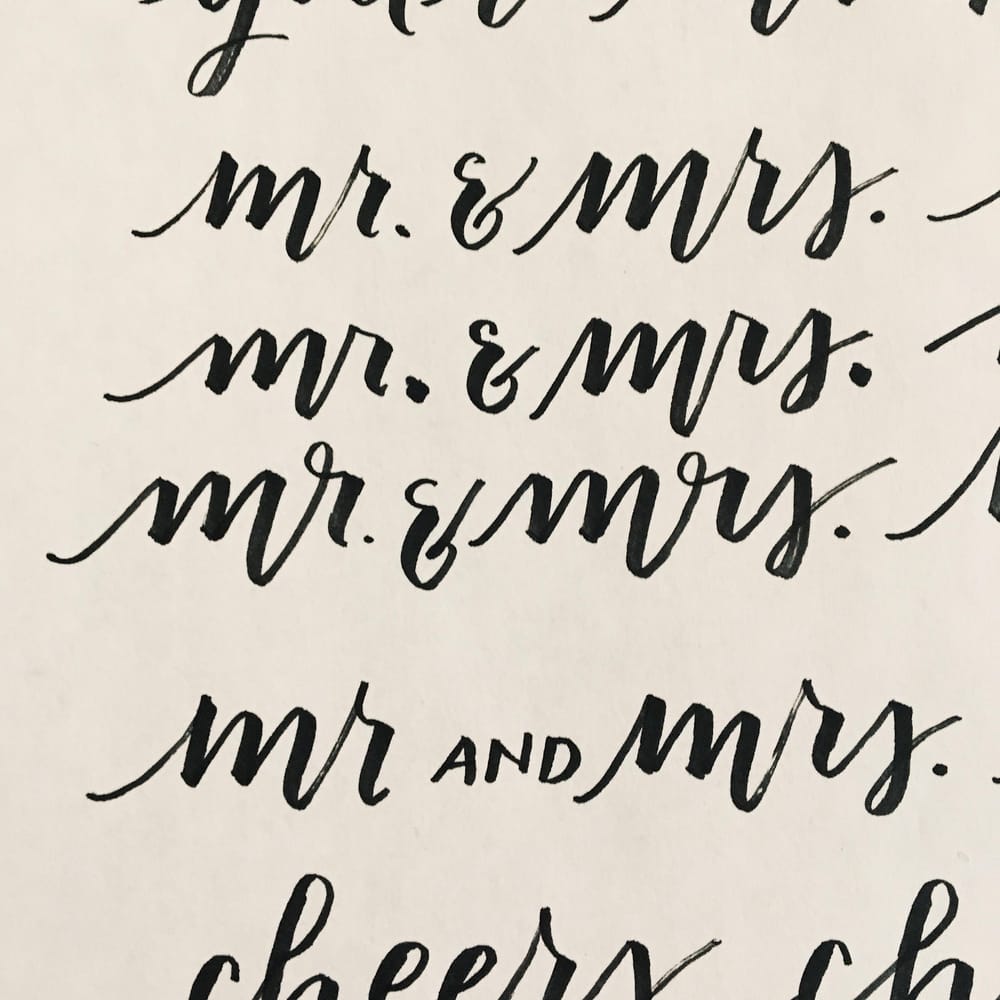 mr. & mrs.
mr. & mrs.
mr. & mrs.
mr AND mrs.
cheers ch